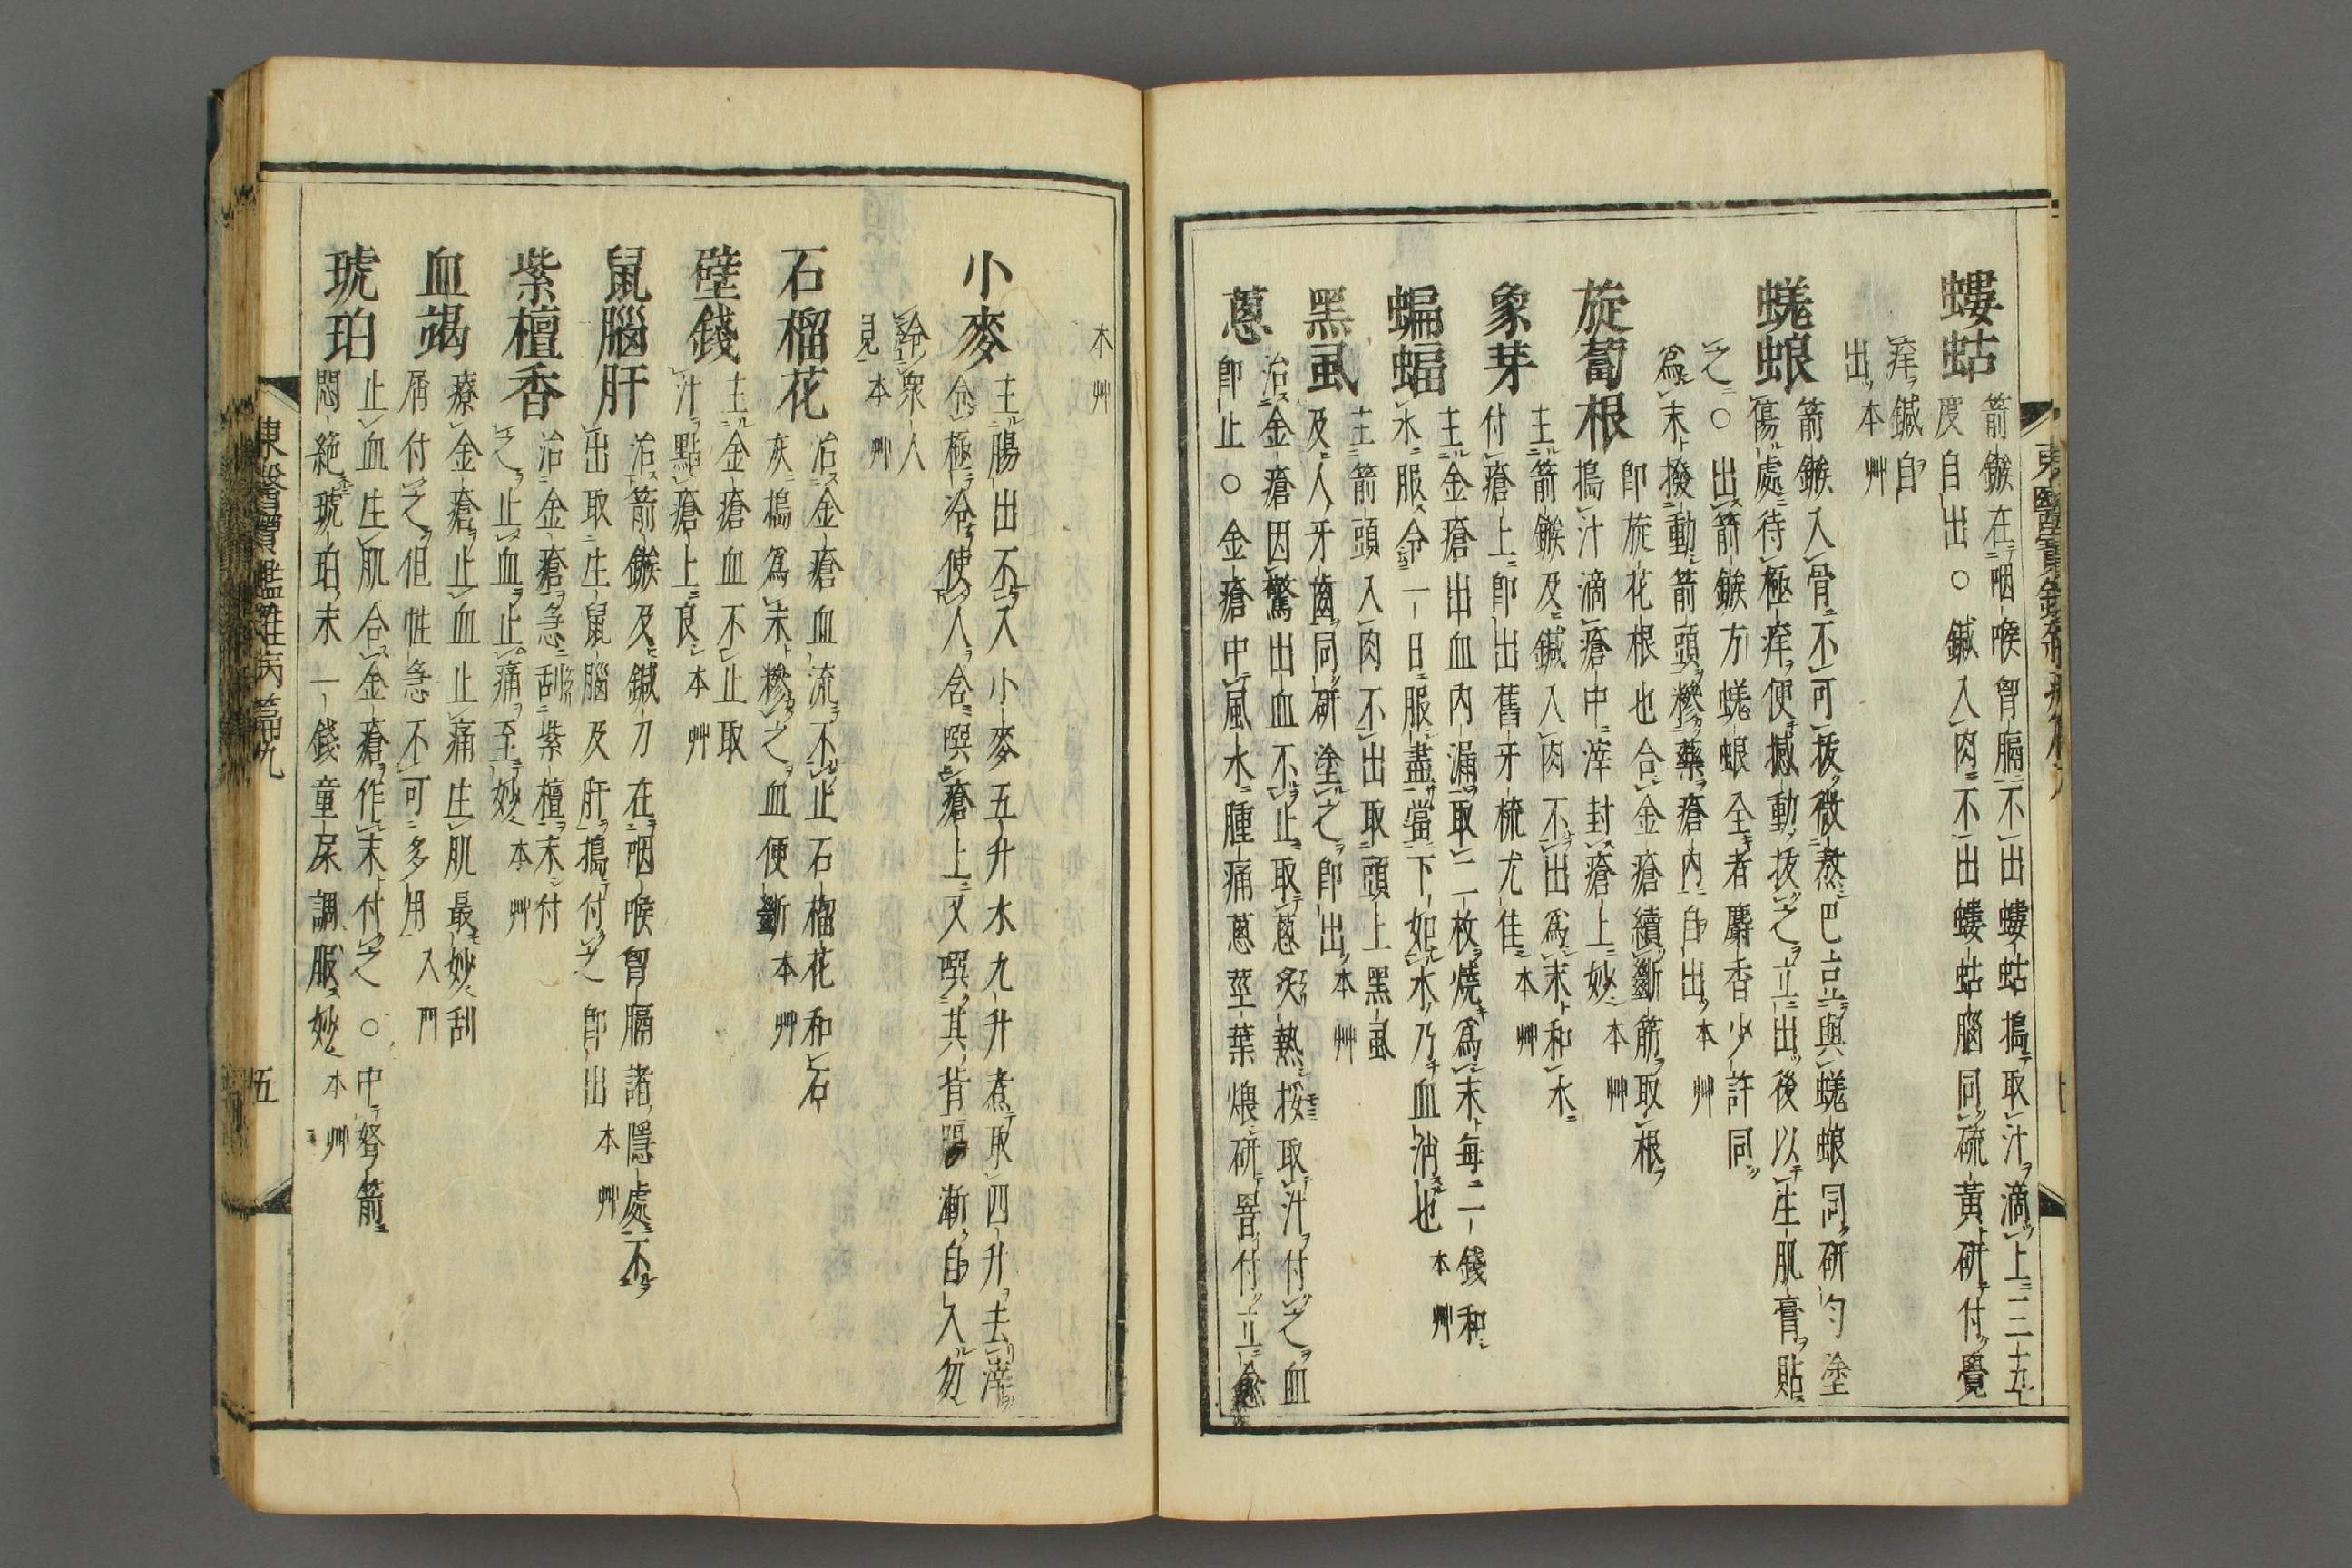 螻蛄
箭鏃在咽喉胷膈不出螻蛄搗取汁滴上三五
度自出○鍼入肉不出螻蛄腦同硫黃研付覺
痒鍼自
出本艸
蜣蜋
箭鏃入骨不可拔微熬巴豆與蜣蜋同研勻塗
傷處待極痒便撼動拔之立出後以生肌膏貼
之○出箭鏃方蜣蜋全者麝香少許同
爲末撥動箭頭糝藥瘡內自出本艸
旋葍根
即旋花根也合金瘡續斷筋取根
搗汁滴瘡中滓封瘡上妙本艸
象芽
主箭鏃及鍼入肉不出爲末和水
付瘡上即出舊牙梳尤佳本艸
蝙蝠
主金瘡出血內漏取二枚燒爲末每二錢和
水服令一日服盡當下如水乃血消也本艸
黑虱
主箭頭入肉不出取頭上黑虱
及人牙齒同研塗之即出本艸
蔥
治金瘡因驚出血不止取蔥炙熱挼取汁付之血
即止○金瘡中風水腫痛蔥莖葉煨研罯付立愈
本艸
小麥
主腸出不入小麥五升水九升煮取四升去滓
令極冷使人含噀瘡上又噀其背漸自入勿
給衆人
見本艸
石榴花
治金瘡血流不止石榴花和石
灰搗爲末糝之血便斷本艸
壁錢
主金瘡血不止取
汁點瘡上良本艸
鼠腦肝
治箭鏃及鍼刀在咽喉胷膈諸隱處不
出取生鼠腦及肝搗付之即出本艸
紫檀香
治金瘡急刮紫檀末付
之止血止痛至妙本艸
血竭
療金瘡止血止痛生肌最妙刮
屑付之但性急不可多用入門
琥珀
止血生肌合金瘡作末付之○中弩箭
悶絶琥珀末一錢童尿調服妙本艸
東醫寶鑑雜病篇九
五